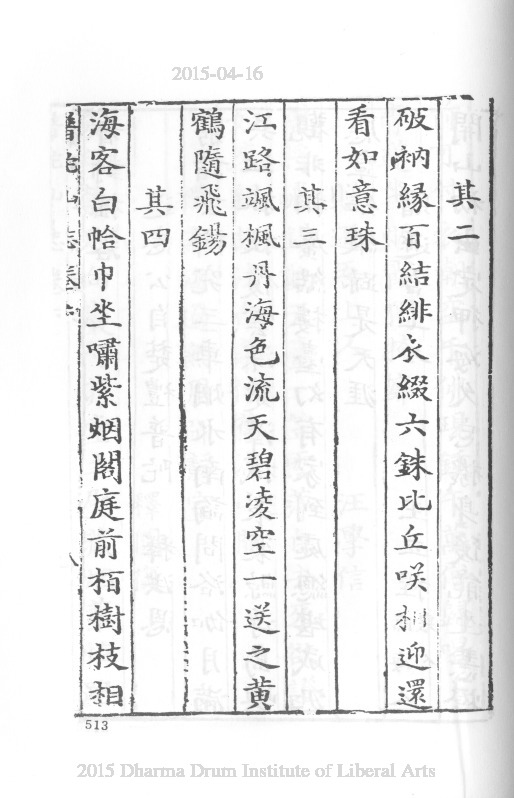 2015-04-16
其二
破衲縁百結緋衣綴六銖比丘咲相迎還
看如意珠
其三
江路颯楓丹海色流天碧凌空一送之黄
鶴隨飛錫
其四
海客白帢巾坐嘯紫烟閣庭前栢樹枝相
普陀山志卷
八
513
2015 Dharma Drum Institute of Liberal Arts